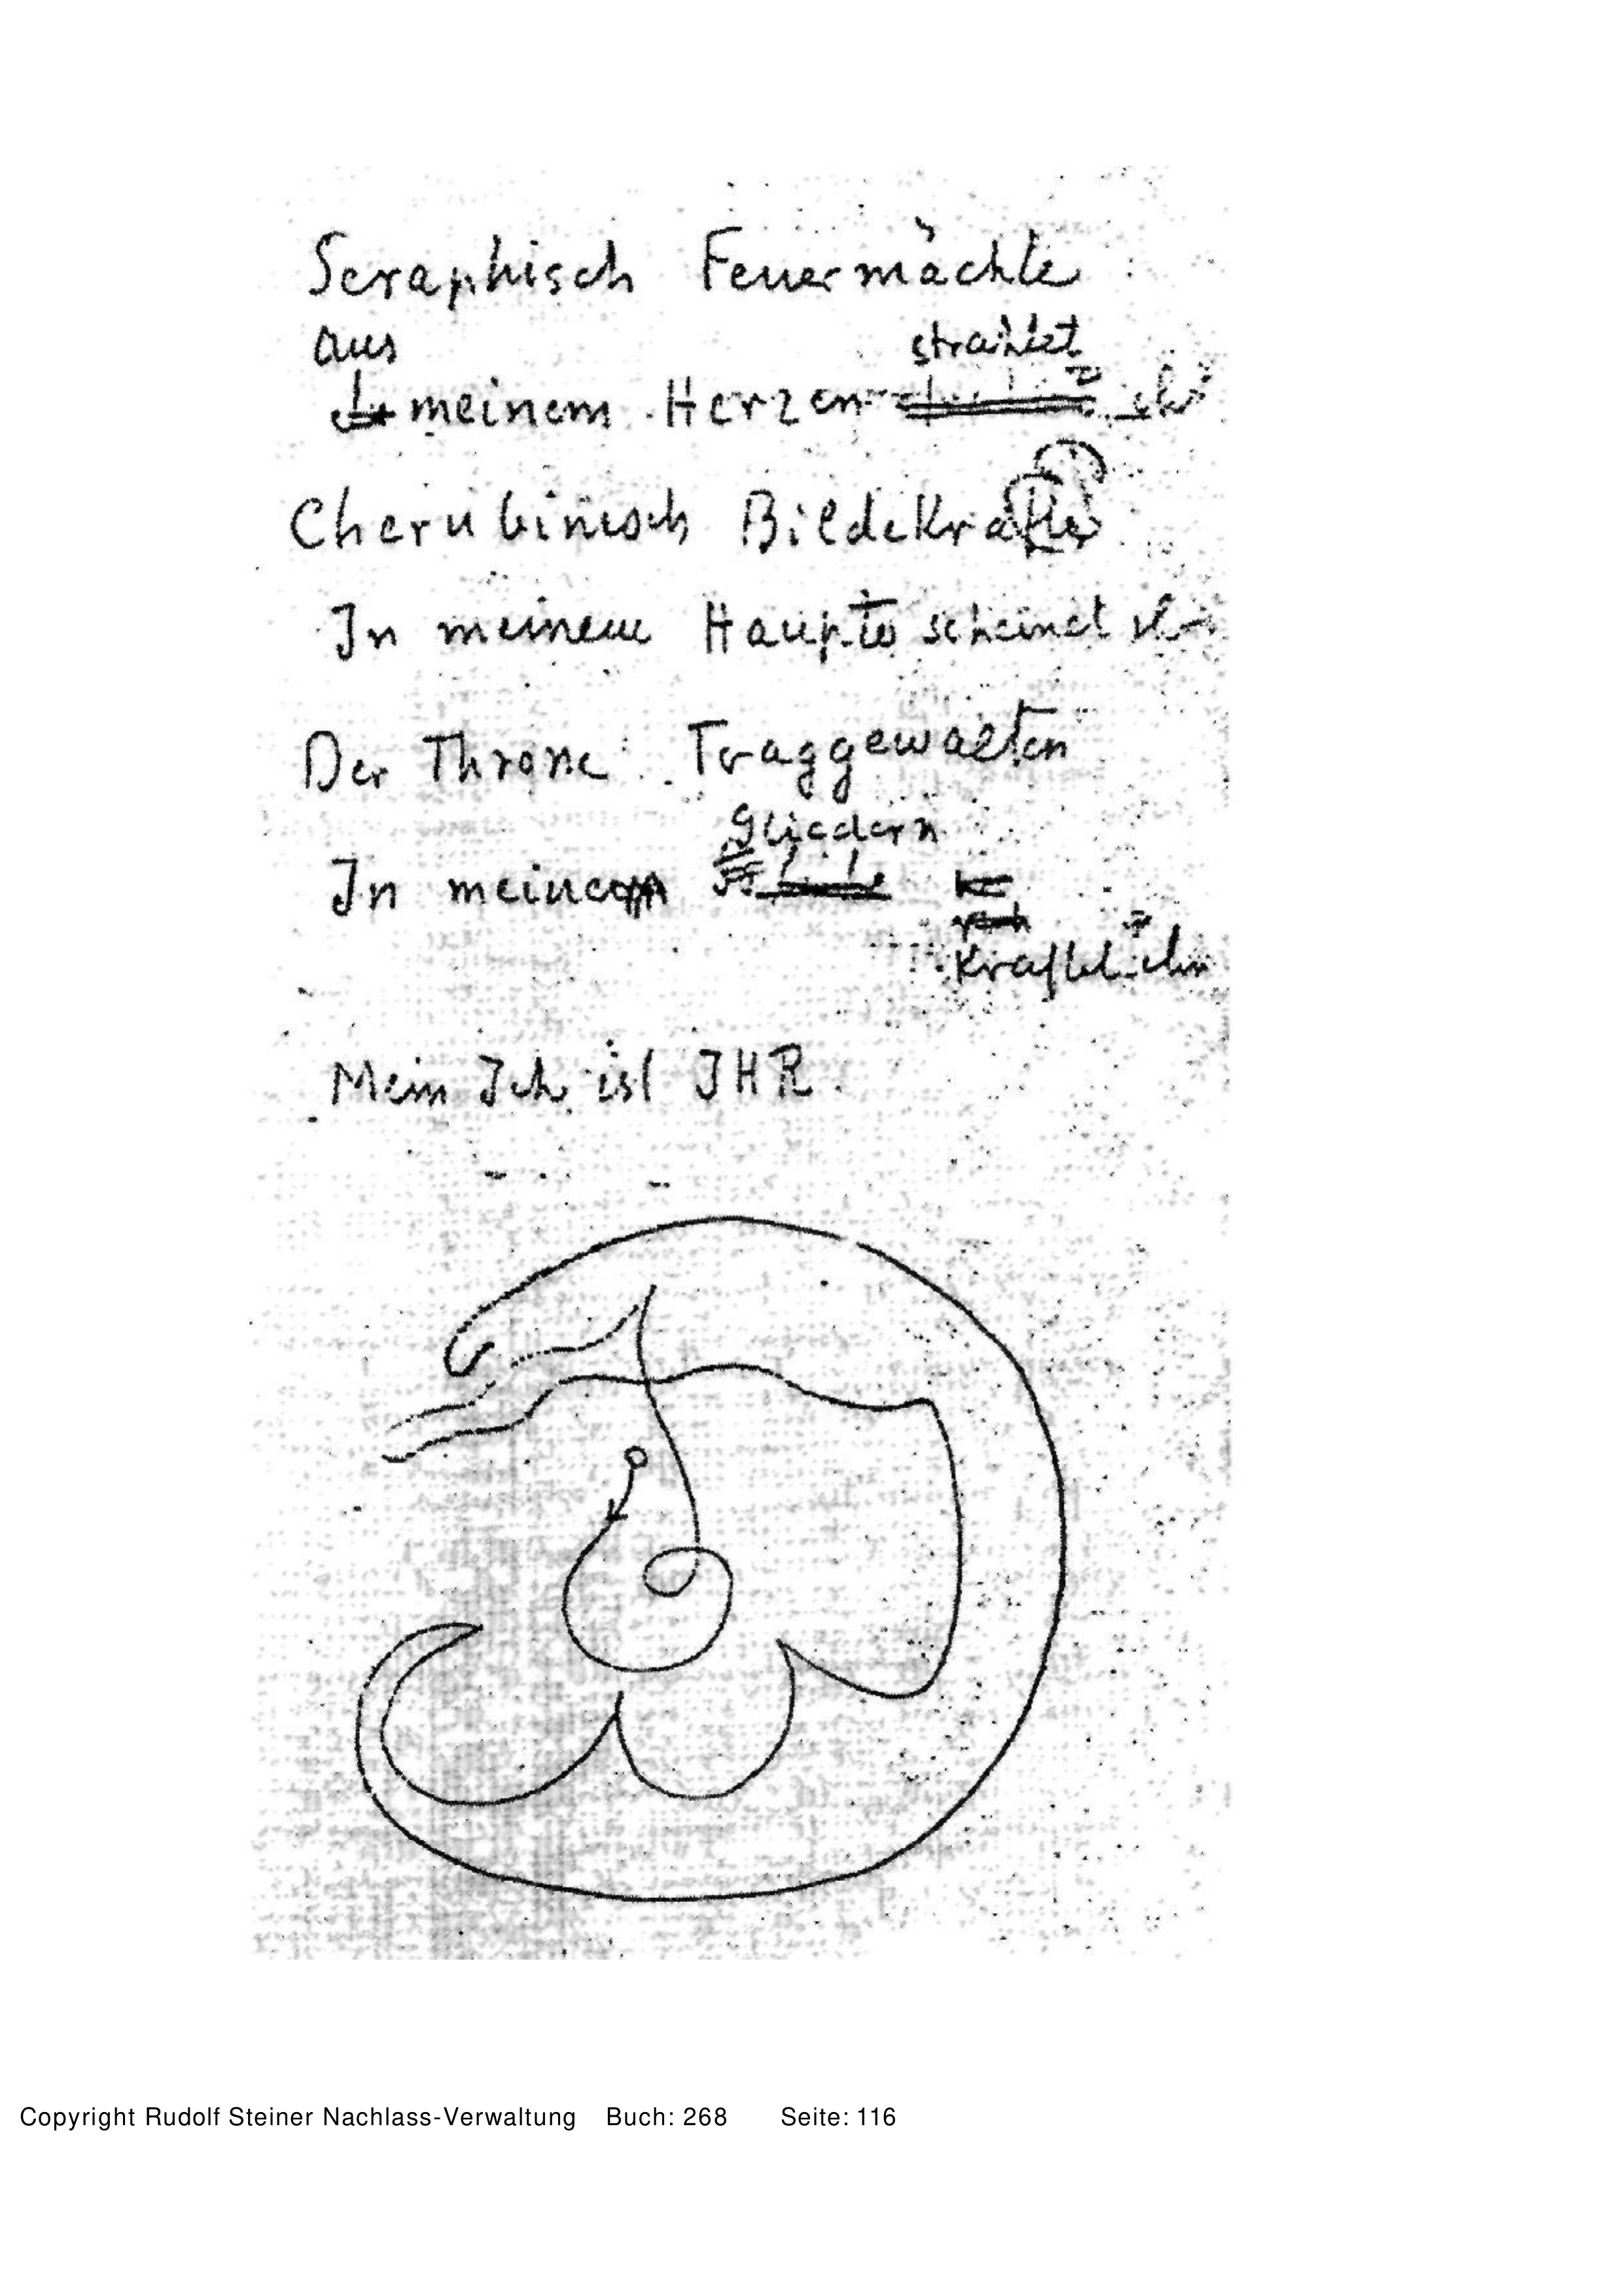 Seraphisch Feuermächte
aus strahlet
meinem Herzen
Cherubinisch Bildekräfte
In meinem Haupte scheinet
Der Throne Traggewalten
Gliedern
In meinen
Mein Ich ist IHR.
Copyright Rudolf Steiner Nachlass-Verwaltung Buch: 268 Seite: 116